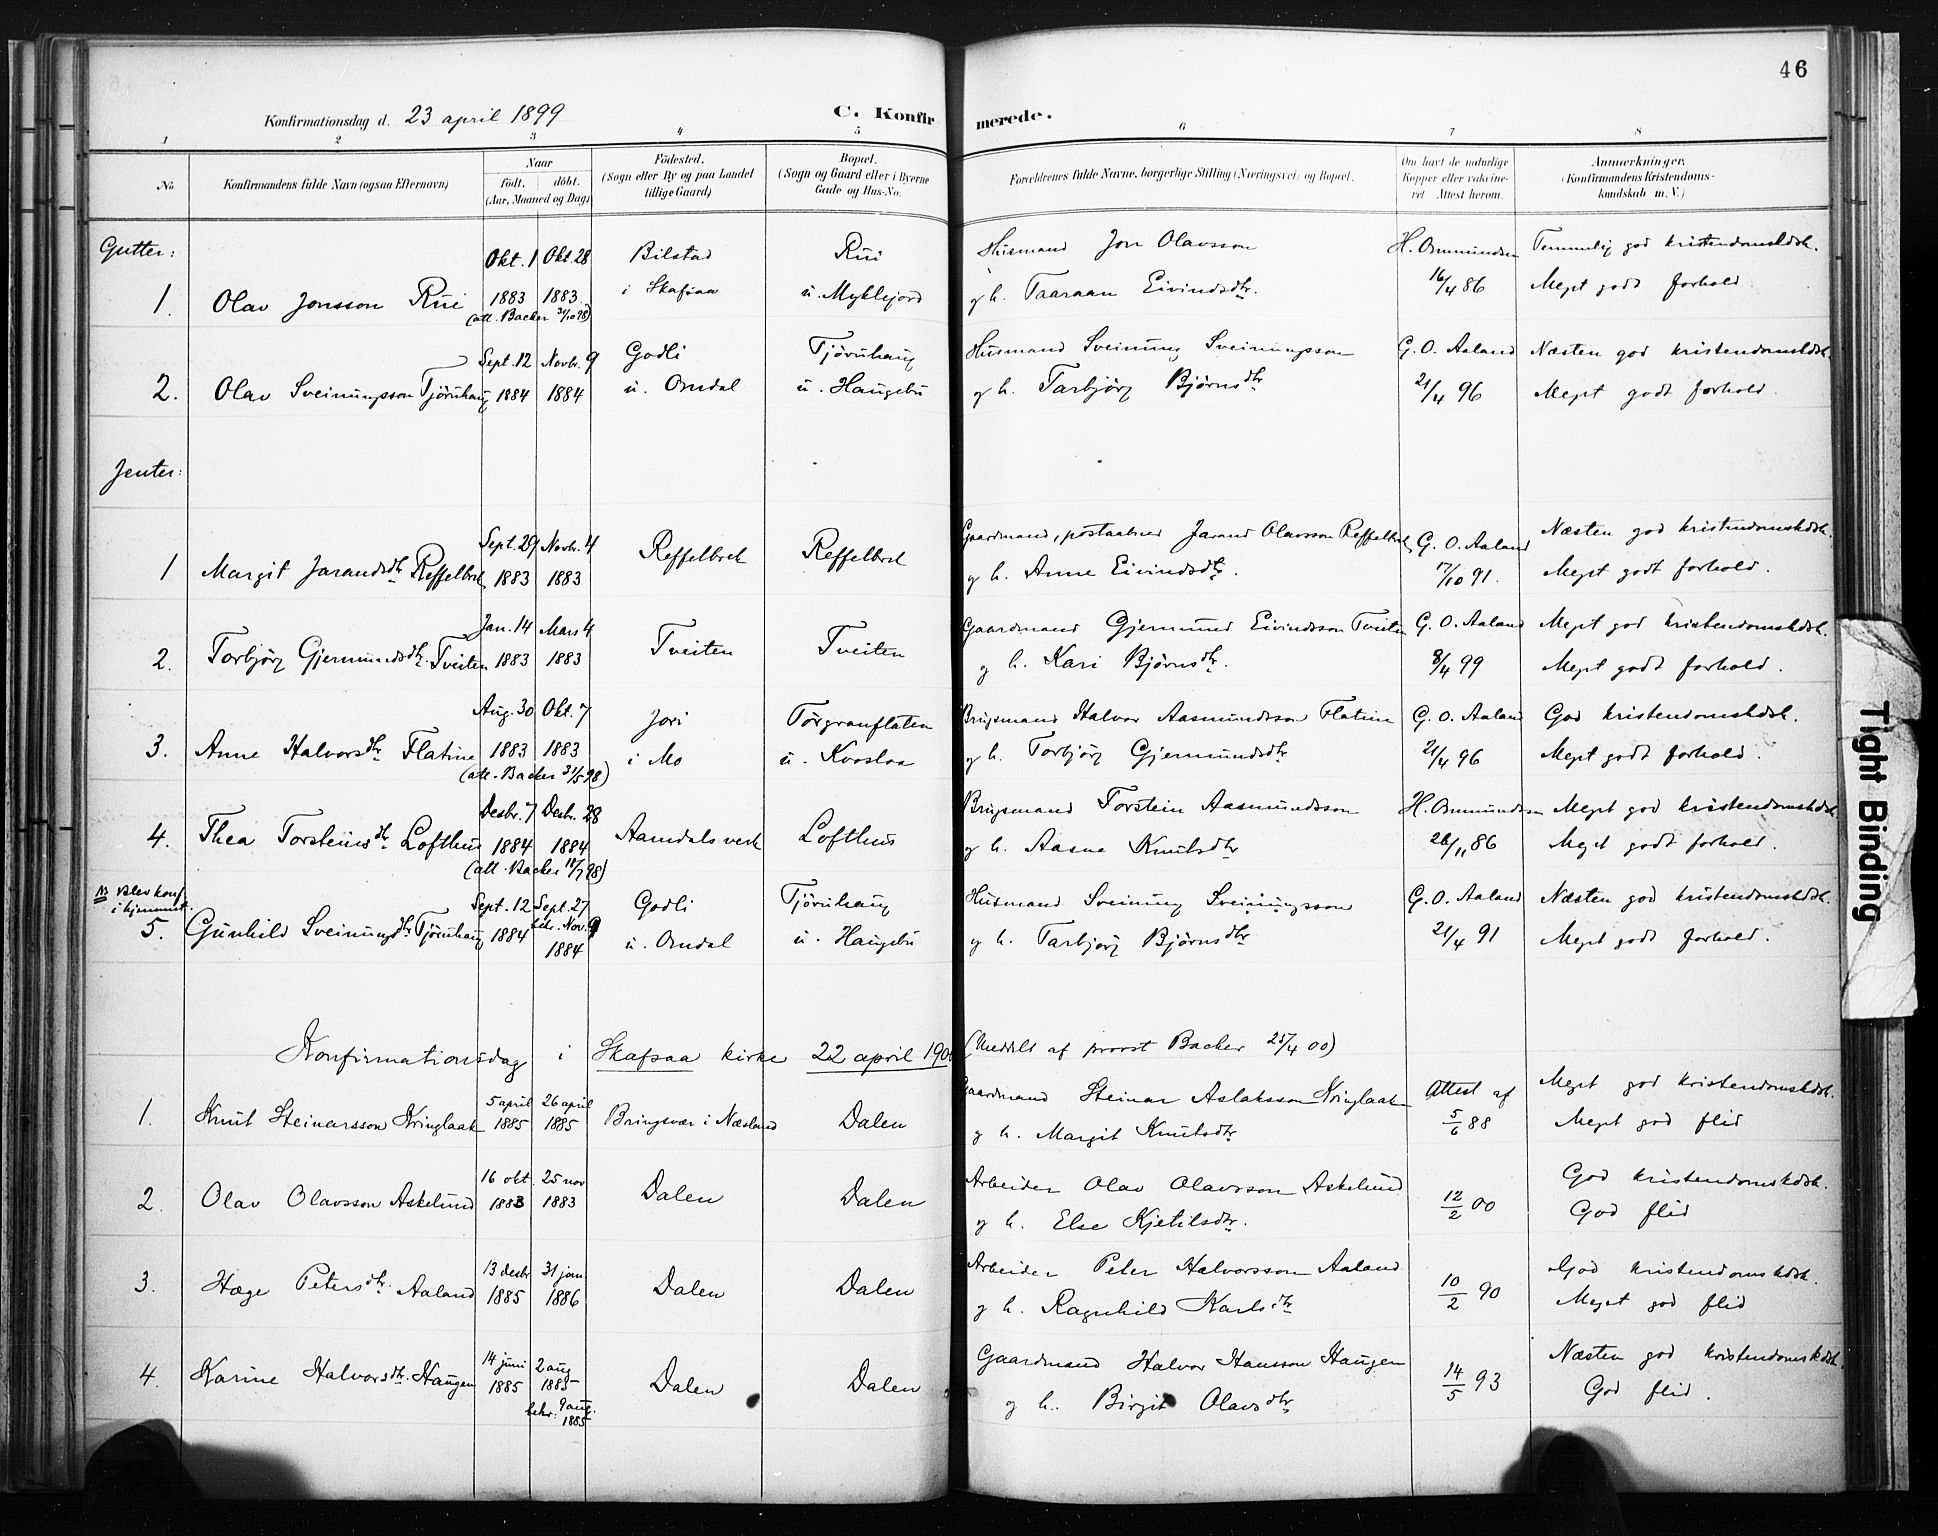 46
Konfirmationsdag d. 23 april 1899
C. Konfirmerede.
1 2 3 4 5 6 7 8
No
Konfirmandens fulde Navn (ogsaa Efternavn)
Naar
födt. döbt.
(Aar, Maaned og Dag)
Födested.
(Sogn eller By og paa Landet
tillige Gaard)
Bopæl.
(Sogn og Gaard eller i Byerne
Gade og Hus-No.
Forældrenes fulde Navne, borgerlige Stilling (Næringsvei) og Bopæl.
Om havt de naturlige
Kopper eller vaccine-
ret Attest herom.
Anmærkninger.
(Konfirmandens Kristendoms-
kundskab m. V.)
Gutter:
Okt. 1 Okt. 28 Bilstad Rui Husmand Jon Olavsson H. Ommundsen Temmelig god kristendomskdsk.
1. Olav Jonsson Rui 1883 1883. i Skafsaa u. Myklejord og h. Taaraan Eivindsdtr. 16/4 86 Meget godt forhold.
(att. Backer 31/10 98)
Sept. 12 Novbr. 9 Godli Tjövuhaug Husmand Sveinung Sveinungsson G. O. Aaland Næsten god kristendomskdsk.
2. Olav Sveinungsson Tjövuhaug 1884 1884 u. Omdal u. Haugebu og h. Tarbjörg Bjørnsdtr 21/4 96 Meget godt forhold.
Jenter:
Sept. 29 Novbr. 4 Reffelbrek Reffelbrek Gaardmand, postaabner Jarand Olavsson Reffelbrek G. O. Aaland Næsten god kristendomskdsk.
1 Margit Jarandsdtr Reffelbrek 1883 1883 og h. Anne Eivindsdtr. 17/10 91. Meget godt forhold.
Jan. 14 Mars 4 Tveiten Tveiten Gaardmand Gjermund Eivindsson Tveiten G. O. Aaland Meget god kristendomskdsk.
2. Torbjørg Gjermundsdtr. Tveiten 1883 1883 og h. Kari Bjørnsdtr. 8/4 99 Meget godt forhold.
Aug. 30 Okt. 7 Jori Torgranflaten Brugsmand Halvor Aasmundsson Flatine G. O. Aaland God kristendomskdsk.
3. Anne Halvorsdtr Flatine 1883 1883 i Mo u. Kvaslaa og h. Torbjørg Gjermundsdtr 21/4 96 Meget godt forhold.
(att. Backer 31/5 98)
Desbr. 7 Desbr. 28 Aamdals verk Lofthus Brugsmand Torstein Aasmundsson H. Ommundsen Meget god kristendomskdsk.
4. Thea Torsteinsdtr Lofthus 1884 1884 og h. Aasne Knutsdtr 26/11 86 Meget godt forhold.
(att. Backer 18/7 98)
NB Blev konf.
i hjemmet.
Sept. 12 Sept. 27 Godli Tjövuhaug Husmand Sveinung Sveinungsson G. O. Aaland Næsten god kristendomskdsk.
5. Gunhild Sveinungsdtr Tjövuhaug 1884 bekr. Nov. 9 1884 u. Omdal u. Haugebu og h. Tarbjørg Bjørnsdtr 21/4 91 Meget godt forhold.
Konfirmationsdag i Skafsaa kirke 22 april 1900 (Meddelt af provst Backer 25/4 00)
5 april 26 april Gaardmand Steinar Aslaksson Kringlaak Attest af Meget god kristendomskdsk.
1. Knut Steinarsson Kringlaak 1885 1885 Bringsvær i Næslund Dalen og h. Margit Knutsdtr 5/6 88 Meget god flid
16 okt. 25 nov Dalen Dalen Arbeider Olav Olavsson Askelund God kristendomskdsk.
2. Olav Olavsson Askelund 1883 1883 og h. Else Kjetilsdtr. 12/2 00 God flid
13 desbr 31 jan Arbeider Peter Halvorsson Aaland God kristendomskdsk.
3. Hæge Petersdtr. Aaland 1885 1886 Dalen Dalen og h. Ragnhild Karlsdtr 10/2 90 Meget god flid
14 juni 2 aug Gaardmand Halvor Hansson Haugen Næsten god kristendomskdsk.
4. Karine Halvorsdtr. Haugen 1885 1885 Dalen Dalen og h. Birgit Olavsdtr 14/5 93 God flid.
bekr. 9 aug. 1885
Tight Binding